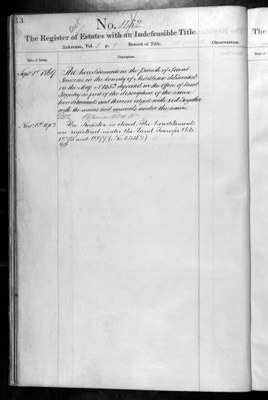 13
No. 1152
The Register of Estates with an Indefeasible Title.
Reference, Vol. p. Record of Title.
Observations.
Date of Entry.
Description.
Sept 1st 1869
The hereditaments in the Parish of
in the County of Middlesex delineated
on the Map deposited in the Office of Land
Registry as part of the description of the same
hereditaments and thereon edged with red Together
with the mines and minerals under the same
The Register is closed. The hereditaments
are registered under the Land Transfer Acts
1875 and 1897